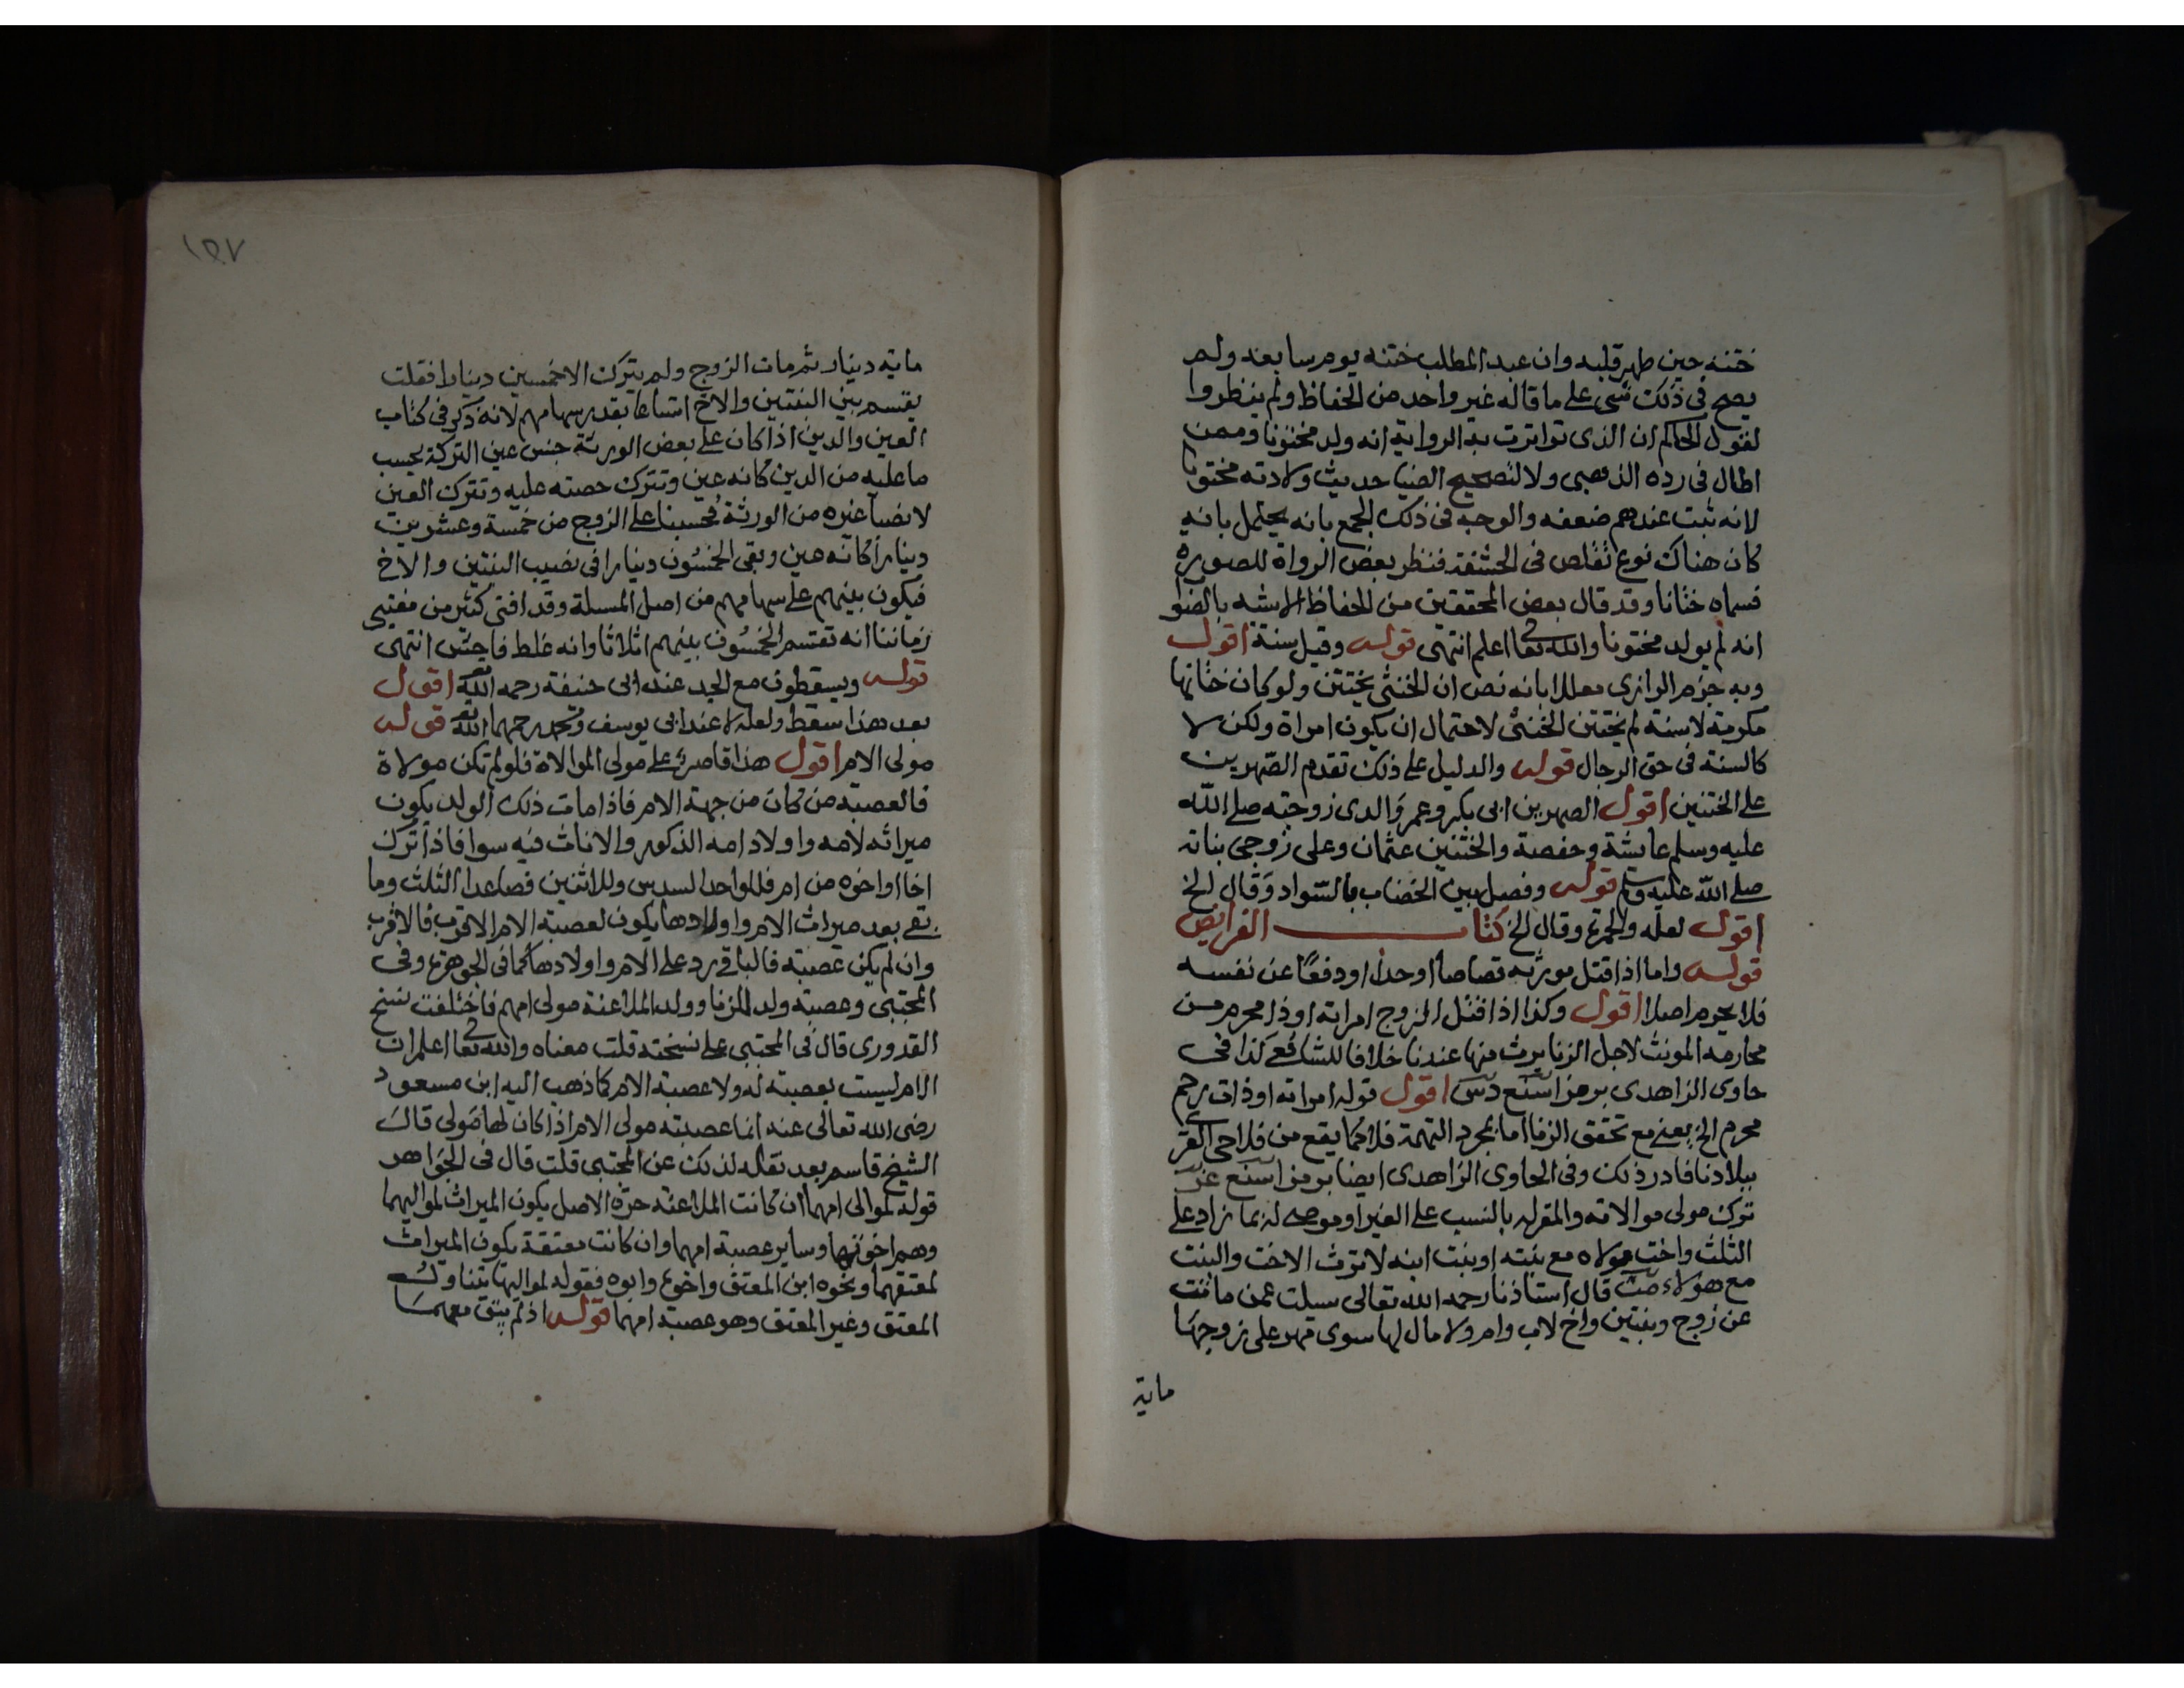 ختنه حين طهر قلبه وان عبد المطلب ختنه يوم سابعه ولم
يصح في ذلك شي على ما قاله غير واحد من الحفاظ ولم ينظروا
لقول الحاكم ان الذى تواترت به الرواية انه ولد مختونا وممن
اطال في رده الذهبى ولا لتصحيح الضيا حديث ولادته مختونا
لانه ثبت عندهم ضعفه والوجه في ذلك الجمع بانه يحتمل بانه
كان هناك نوع تقلص في الحشفة فنظر بعض الرواة للصورة
فسماه ختانا وقد قال بعض المحققين من الحفاظ الاشبه بالصواب
انه لم يولد مختونا والله تعا اعلم انتهى قوله وقيل سنة اقول
وبه جزم البزازى معللا بانه نص ان الخنثى يختتن ولو كان ختانها
مكرمة لا سنة لم يختتن الخنثى لاحتمال ان يكون امراة ولكن لا
كالسنة في حق الرجال قوله والدليل على ذلك تقدم الصهرين
على الختنين اقول الصهرين ابى بكر وعمر والدى زوجته صلى الله
عليه وسلم عايشة وحفصة والختنين عثمان وعلى زوجى بناته
صلى الله عليه وسلم قوله وفصل بين الخضاب بالسواد وقال الخ
اقول لعله والحمرة وقال الخ كتاب الفرايض
قوله واما اذا قتل مورثه قصاصا او حدا او دفعًا عن نفسه
فلا يحرم اصلا اقول وكذا اذا قتل الزوج امراته او ذا محرم من
محارمه المونث لاجل الزنا يرث منها عندنا خلافا للشافعى كذا في
حاوى الزاهدى برمز اسنع دس اقول قوله امراته او ذات رحم
محرم الخ يعنى مع تحقق الزنا اما بمجرد التهمة فلا كما يقع من فلاحى القرى
ببلادنا فادر ذلك وفى الحاوى الزاهدى ايضا برمز اسنع عن
ترك مولى موالاته والمقر له بالنسب على الغير او موصى له بما زاد على
الثلث واخت مولاه مع بنته او بنت ابنه لا ترث الاخت والبنت
مع هولاء مت قال استاذنا رحمه الله تعالى سيلت عمن ماتت
عن زوج وبنتين واخ لاب وام ولا مال لها سوى مهر على زوجها
ماية
١٤٧
ماية دينار ثم مات الزوج ولم يترك الا خمسين دينارا فقلت
يقسم بين البنتين والاخ اتساعا بقدر سهامهم لانه ذكر في كتاب
العين والدين اذا كان على بعض الورثة جنس عين التركة يحسب
ما عليه من الدين كانه عين وتترك حصته عليه وتترك العين
لانصبا غيره من الورثة فحسبنا على الزوج من خمسة وعشرين
دينارا كانه عين وبقى الخمسون دينارا في نصيب البنتين والاخ
فيكون بينهم على سهامهم من اصل المسلة وقد افتى كثير من مفتيى
زماننا انه تقسم الخمسون بينهم اثلاثا وانه غلط فاحش انتهى
قوله ويسقطون مع الجد عند ابى حنيفة رحمه الله اقول
بعد هذا سقط ولعله لا عند ابى يوسف ومحمد رحمهما الله قوله
مولى الام اقول هذا قاصر على مولى الموالاة فلو لم تكن مولاة
فالعصبة من كان من جهة الام فاذا مات ذلك الولد يكون
ميراثه لامه واولاد امه الذكور والاناث فيه سوا فاذا ترك
اخا او اخوه من ام فللواحد السدس وللاثنين فصاعدا الثلث وما
بقى بعد ميراث الام واولادها يكون لعصبة الام الاقرب فالاقرب
وان لم يكن عصبة فالباقى رد على الام واولادها كما في الجوهرة وفى
المجتبى وعصبة ولد الزنا وولد الملاعنة مولى امهم فاختلفت نسخ
القدورى قال في المجتبى على نسخته قلت معناه والله تعا اعلم ان
الام ليست بعصبة له ولا عصبة الام كما ذهب اليه ابن مسعود
رضى الله تعالى عنه انما عصبته مولى الام اذا كان لها مولى قال
الشيخ قاسم بعد نقله لذلك عن المجتبى قلت قال في الجواهر
قوله لموالى امهما ان كانت الملاعنة حرة الاصل يكون الميراث لمواليهما
وهم اخوتها وساير عصبة امهما وان كانت معتقة يكون الميراث
لمعتقهما ونحوه ابن المعتق واخوه وابوه فقوله لمواليها يتناول
المعتق وغير المعتق وهو عصبة امهما قوله اذ لم يبق معهما